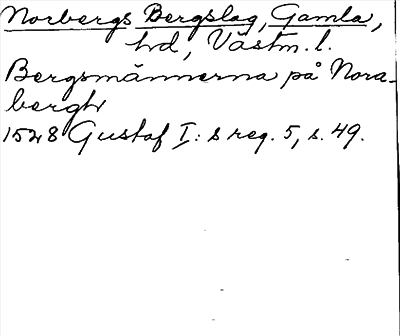 Norbergs Bergslag, Gamla,
hd, Västm. l.
Bergsmännerna på Nora-
bergh
1528 Gustaf I:s reg. 5, s. 49.